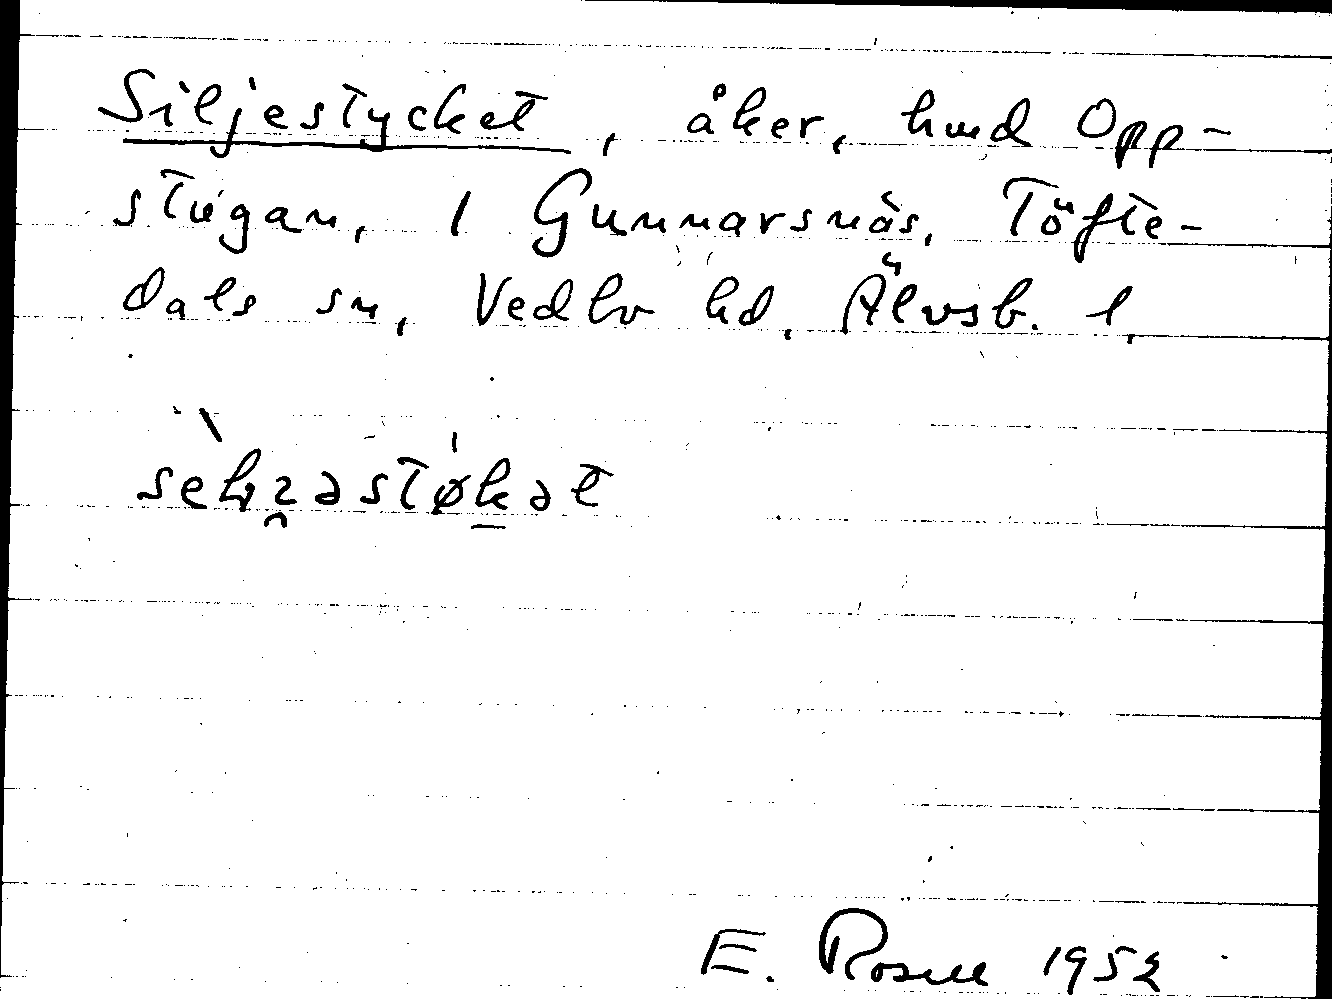 Siljestycket, åker, hmd Opp-
stugan, 1 Gunnarsnäs, Töfte-
dals sn, Vedbo hd, Älvsb. l.
E. Rosell 1952